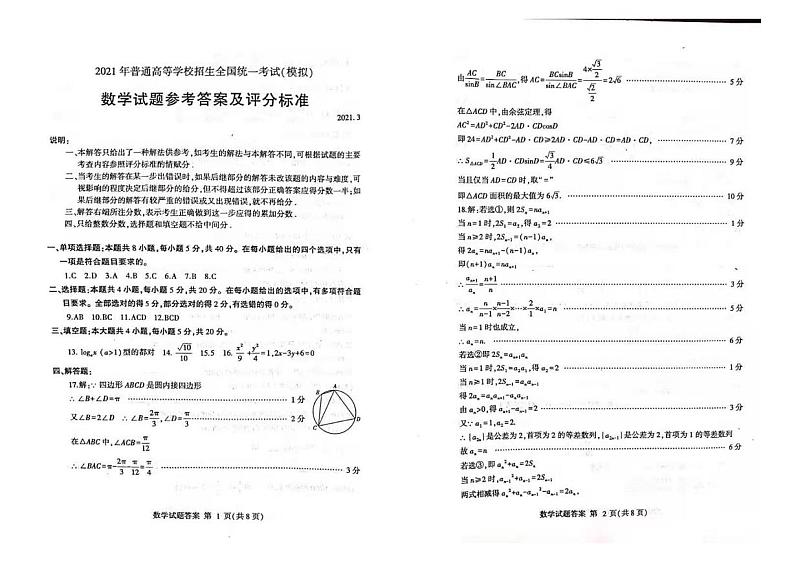 2021 年普通高等学校招生全国统一考试(模拟)
数学试题参考答案及评分标准
2021.3
说明:
一、本解答只给出了一种解法供参考,如考生的解法与本解答不同,可根据试题的主要
考查内容参照评分标准酌情赋分.
二、当考生的解答在某一步出错误时,如果后继部分的解答未改该题的内容与难度,可
视影响的程度决定后继部分的给分,但不得超过该部分正确答案应得分数一半;如
果后继部分的解答有较严重的错误或又出现错误,就不再给分.
三、解答右端所注分数,表示考生正确做到这一步应得的累加分数.
四、只给整数分数,选择题和填空题不给中间分.
一、单项选择题:本题共 8 小题,每小题 5 分,共 40 分. 在每小题给出的四个选项中,只有
一项是符合题目要求的。
1.C 2.D 3.A 4.B 5.C 6.B 7.B 8.C
二、选择题:本题共 4 小题,每小题 5 分,共 20 分. 在每小题给出的选项中,有多项符合题
目要求。全部选对的得 5 分,部分选对的得 2 分,有选错的得 0 分。
9.AB 10.BC 11.ACD 12.BCD
三、填空题:本大题共 4 小题,每小题 5 分,共 20 分.
13. logₐx (a>1)型的都对 14. √10/10 15.5 16. x²/9+y²/4=1,2x-3y+6=0
四、解答题:
17.解:∵ 四边形 ABCD 是圆内接四边形
∴ ∠B+∠D=π 1 分
又∠B=2∠D ∴∠B=2π/3,∠D=π/3 2 分
在△ABC 中,∠ACB=π/12
∴ ∠BAC=π-2π/3-π/12=π/4 3 分
A
B
C
D
数学试题答案 第 1 页(共 8 页)
由AC/sinB=BC/sin∠BAC,得 AC=BCsinB/sin∠BAC=(4×√3/2)/(√2/2)=2√6 5 分
在△ACD 中,由余弦定理,得
AC²=AD²+CD²-2AD·CDcosD
即 24=AD²+CD²-AD·CD≥2AD·CD-AD·CD=AD·CD, 7 分
∴S△ACD=1/2 AD·CDsinD=√3/4 AD·CD≤6√3 9 分
当且仅当 AD=CD 时,取“=”
即△ACD 面积的最大值为 6√3. 10 分
18.解:若选①,则 2Sₙ=naₙ₊₁
当 n=1 时,2S₁=a₂,得 a₂=2 1 分
当 n≥2 时,2Sₙ₋₁=(n-1)aₙ,
得 2aₙ=naₙ₊₁-(n-1)aₙ,
即(n+1)aₙ=naₙ₊₁
∴aₙ₊₁/aₙ=(n+1)/n 3 分
∴aₙ=n/(n-1)×(n-1)/(n-2)×…×2/1×a₁=n 5 分
当 n=1 时也成立,
∴ aₙ=n. 6 分
若选②即 2Sₙ=aₙ₊₁aₙ
当 n=1 时,2S₁=a₂a₁,得 a₂=2 1 分
当 n≥1 时,2Sₙ₋₁=aₙaₙ₋₁
得 2aₙ=aₙaₙ₊₁-aₙaₙ₋₁
由 aₙ>0,得 aₙ₊₁-aₙ₋₁=2 3 分
又∵ a₁=1,a₂=2.
∴{a₂ₙ}是公差为 2,首项为 2 的等差数列,{a₂ₙ₋₁}是公差为 2,首项为 1 的等差数列
故 aₙ=n 6 分
若选③,即 aₙ²+aₙ=2Sₙ
当 n≥2 时,aₙ₋₁²+aₙ₋₁=2Sₙ₋₁
两式相减得 aₙ²+aₙ-aₙ₋₁²-aₙ₋₁=2aₙ,
数学试题答案 第 2 页(共 8 页)